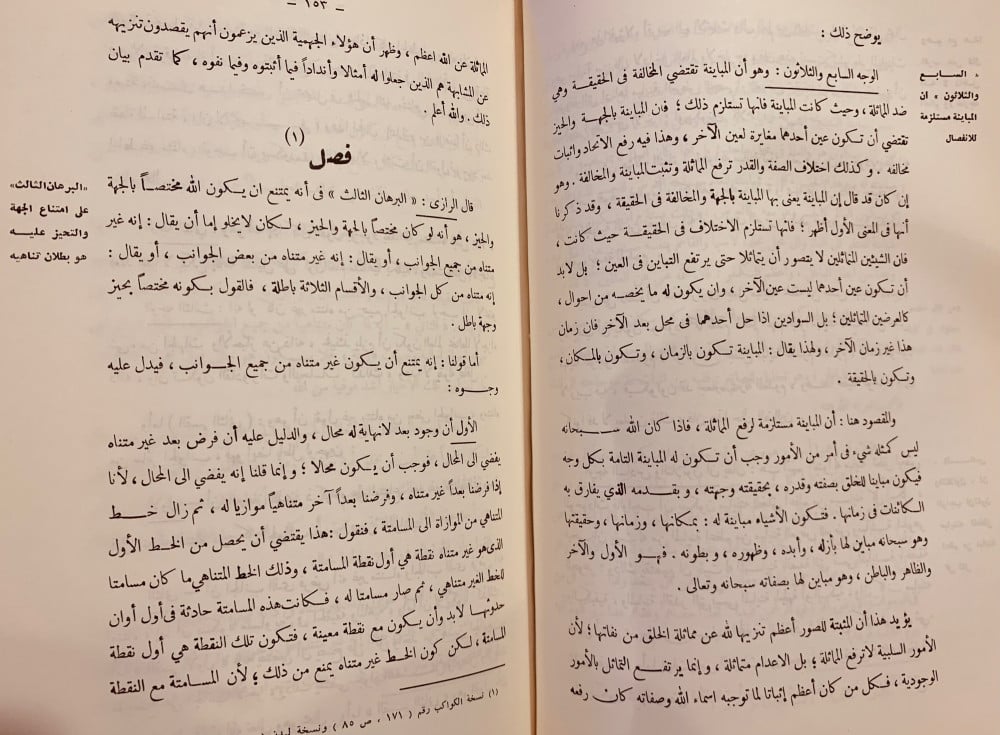 يوضح ذلك :
الوجه السابع والثلاثون : وهو أن المباينة تقتضي المخالفة في الحقيقة وهي
ضد المماثلة ، وحيث كانت المباينة فانها تستلزم ذلك ؛ فان المباينة بالجهة والحيز
تقتضي أن تكون عين أحدهما مغايرة لعين الآخر ، وهذا فيه رفع الاتحاد واثبات
مخالفه . وكذلك اختلاف الصفة والقدر ترفع المماثلة وتثبت المباينة والمخالفة . وهو
إن كان قد قال إن المباينة يعنى بها المباينة بالجهة والمخالفة في الحقيقة ، وقد ذكرنا
أنها في المعنى الأول أظهر ؛ فانها تستلزم الاختلاف في الحقيقة حيث كانت ،
فان الشيئين المتماثلين لا يتصور أن يتماثلا حتى يرتفع التباين في العين ؛ بل لابد
أن تكون عين أحدهما ليست عين الآخر ، وان يكون له ما يخصه من احوال ،
كالعرضين المتماثلين ؛ بل السوادين اذا حل أحدهما في محل بعد الآخر فان زمان
هذا غير زمان الآخر ، ولهذا يقال : المباينة تكون بالزمان ، وتكون بالمكان ،
وتكون بالحقيقة .
والمقصود هنا : أن المباينة مستلزمة لرفع المماثلة ، فاذا كان الله سبحانه
ليس كمثله شيء في أمر من الأمور وجب أن تكون له المباينة التامة بكل وجه
فيكون مباينا للخلق بصفته وقدره ، بحقيقته وجهته ، و بقدمه الذي يفارق به
الكائنات في زمانها . فتكون الأشياء مباينة له : بمكانها ، وزمانها ، وحقيقتها
وهو سبحانه مباين لها بأزله ، وأبده ، وظهوره ، و بطونه . فهو الأول والآخر
والظاهر والباطن ، وهو مباين لها بصفاته سبحانه وتعالى .
يؤيد هذا أن المثبتة للصور أعظم تنزيها لله عن مماثلة الخلق من نفاتها ؛ لأن
الأمور السلبية لاترفع المماثلة ؛ بل الاعدام متماثلة ، وإنما يرتفع التماثل بالأمور
الوجودية ، فكل من كان أعظم إثباتا لما توجبه اسماء الله وصفاته كان رفعه
« السابع
والثلاثون » ان
المباينة مستلزمة
للانفصال
– ١٥٣ –
المماثلة عن الله اعظم ، وظهر أن هؤلاء الجهمية الذين يزعمون أنهم يقصدون تنزيهه
عن المشابهة هم الذين جعلوا له أمثالا وأنداداً فيما أثبتوه وفيما نفوه ، كما تقدم بيان
ذلك . والله أعلم .
فصل (١)
قال الرازي : « البرهان الثالث » في أنه يمتنع ان يكون الله مختصاً بالجهة
والحيز ، هو أنه لو كان مختصاً بالجهة والحيز ، لكان لايخلو إما أن يقال : إنه غير
متناه من جميع الجوانب ، أو يقال : إنه غير متناه من بعض الجوانب ، أو يقال :
إنه متناه من كل الجوانب ، والأقسام الثلاثة باطلة ، فالقول بكونه مختصاً بحيز
وجهة باطل .
أما قولنا : إنه يمتنع أن يكون غير متناه من جميع الجوانب ، فيدل عليه
وجوه :
الأول أن وجود بعد لانهاية له محال ، والدليل عليه أن فرض بعد غير متناه
يفضي الى المحال ، فوجب أن يكون محالا ؛ و إنما قلنا إنه يفضي الى المحال ، لأنا
إذا فرضنا بعداً غير متناه ، وفرضنا بعداً آخر متناهياً موازيا له ، ثم زال خط
المتناهي من الموازاة الى المسامتة ، فنقول : هذا يقتضي أن يحصل من الخط الأول
الذي هو غير متناه نقطة هي أول نقطة المسامتة ، وذلك الخط المتناهي ما كان مسامتا
للخط الغير متناهي ، ثم صار مسامتا له ، فكانت هذه المسامتة حادثة في أول أوان
حدوثها لابد وأن يكون مع نقطة معينة ، فتكون تلك النقطة هي أول نقطة
المسامتة ، لكن كون الخط غير متناه يمنع من ذلك ؛ لأن المسامتة مع النقطة
(١) نسخة الكواكب رقم ( ١٧١ ، ص ٨٥ ) ونسخة
«البرهان الثالث»
على امتناع الجهة
والتحيز عليه
هو بطلان تناهيه